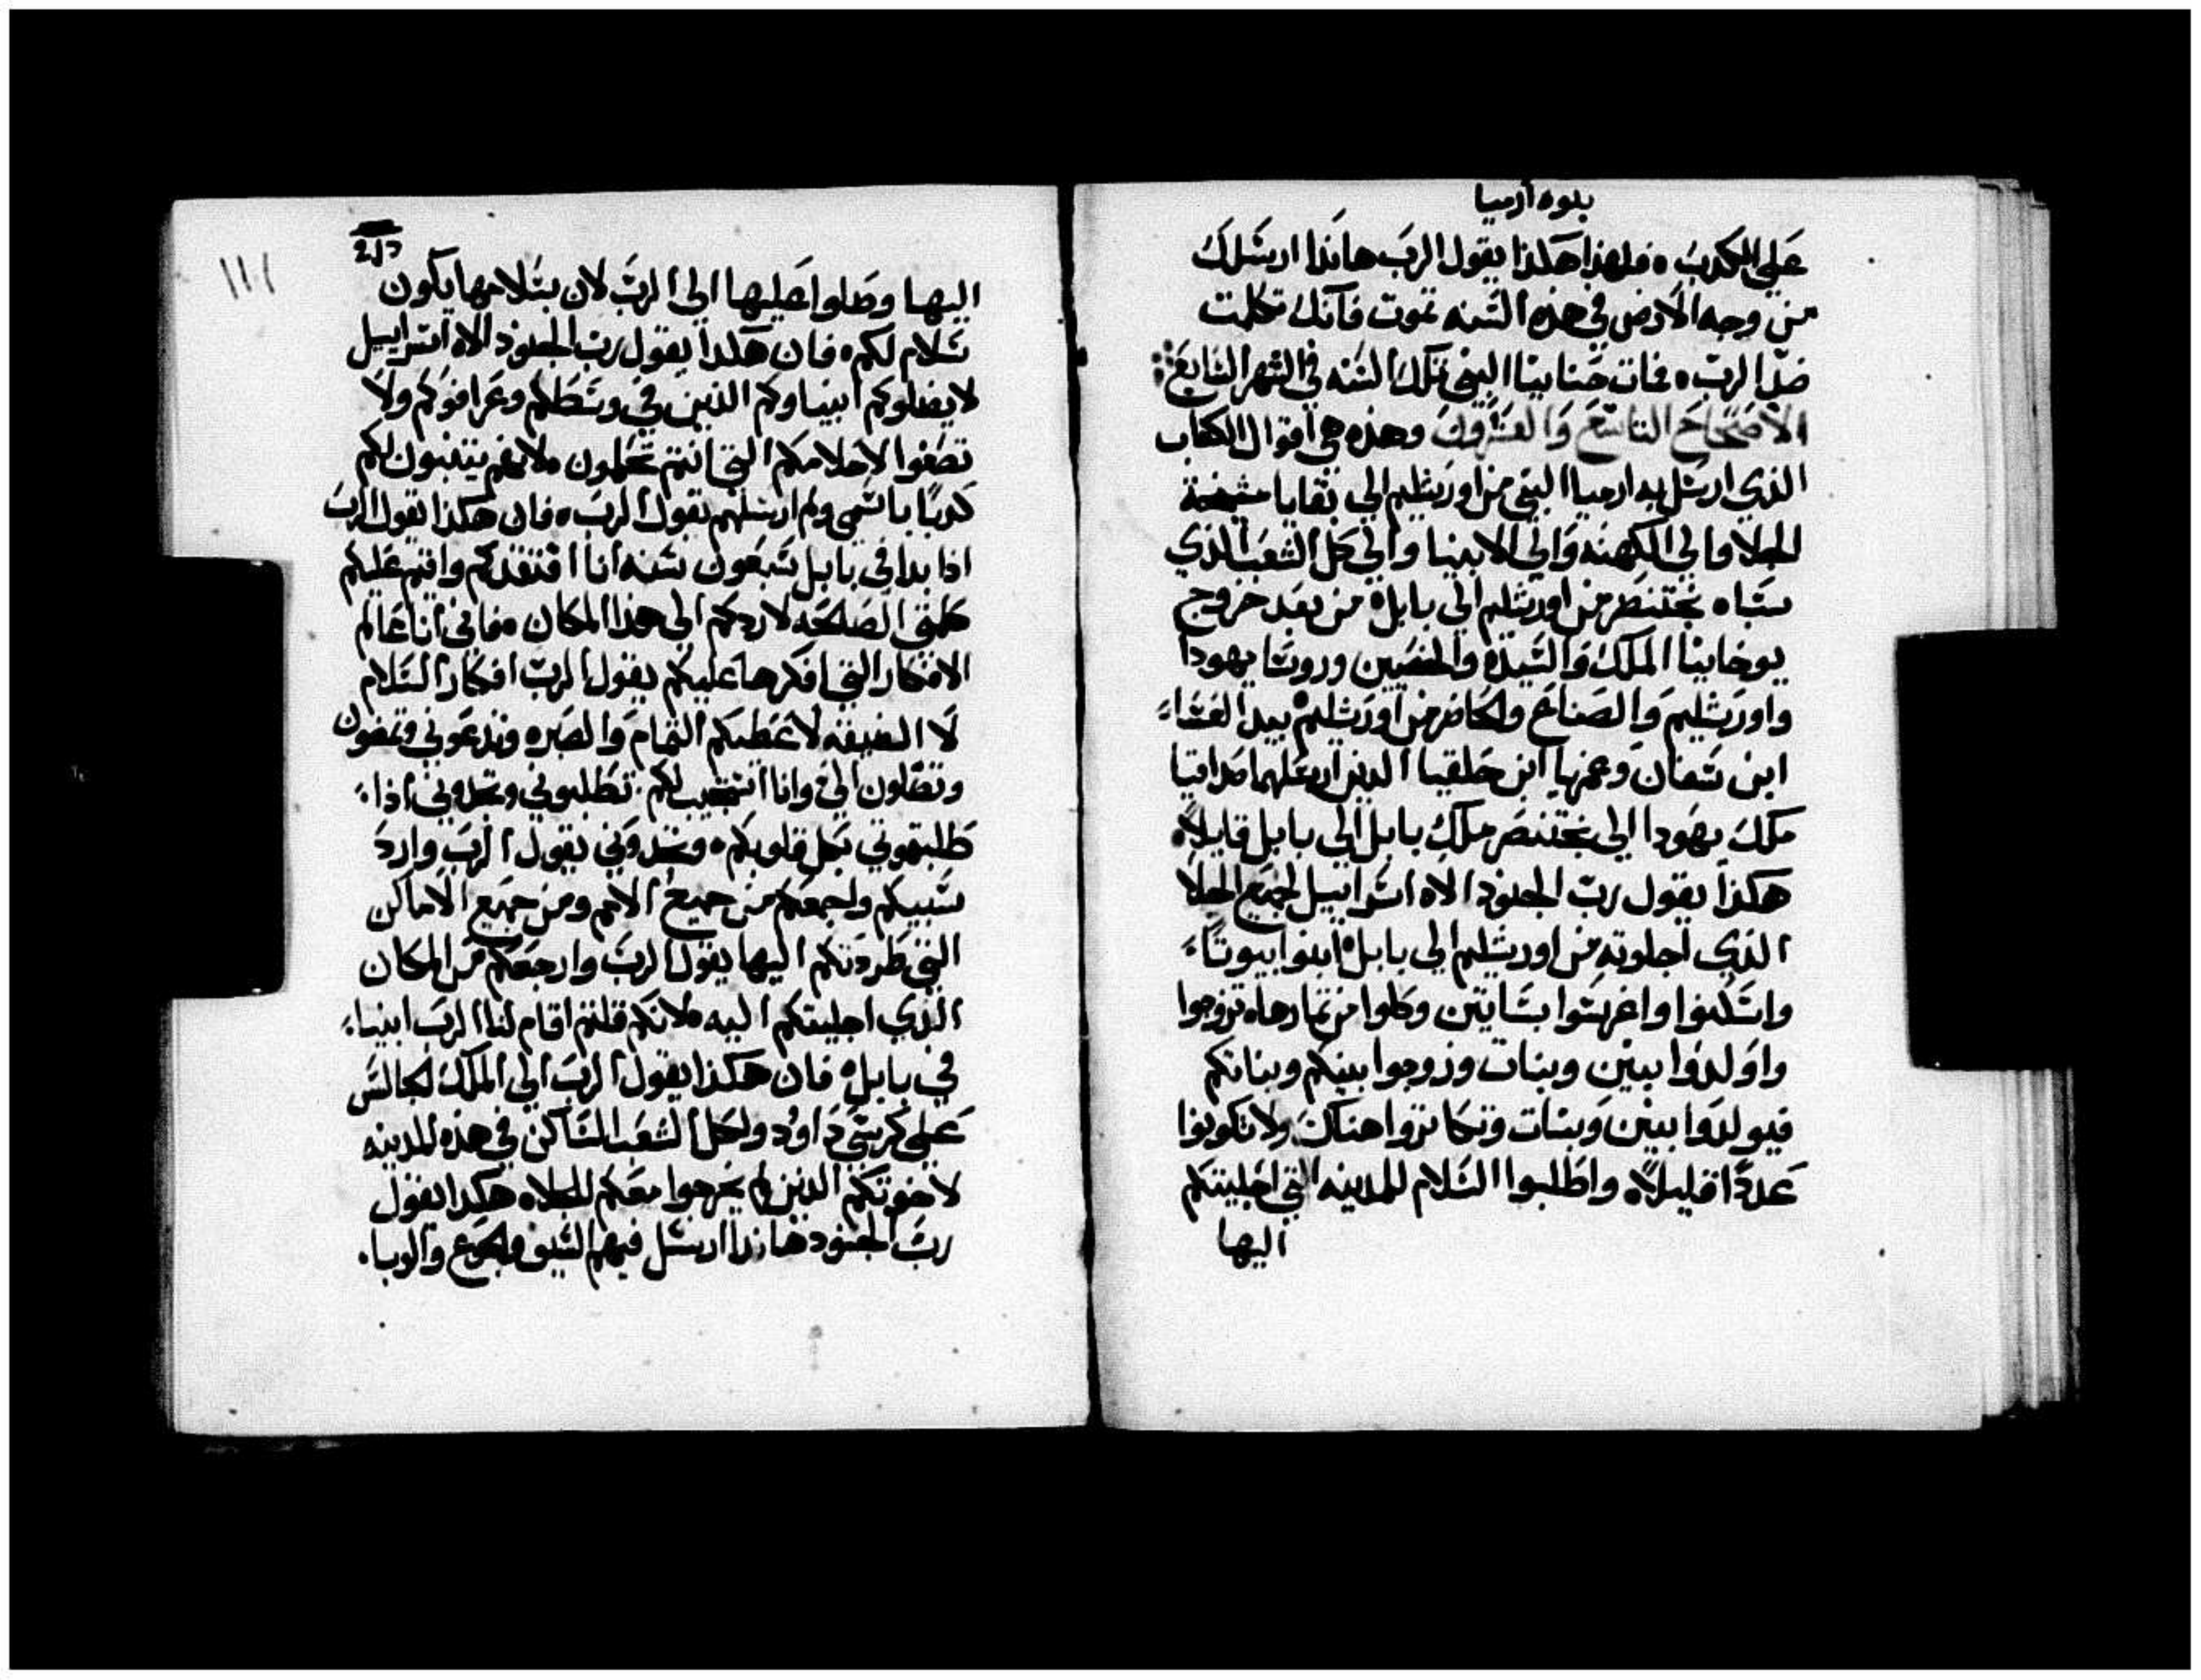 نبوه ارميا
علي الكدب ه فلهذا هكذا يقول الرب هانذا ارسلك
من وجه الارض في هذه السنه تموت فانك تكلمت
ضد الرب ه فمات حنانيا النبي تلك السنه في الشهر السابع
الاصحاح التاسع والعشرون وهذه هي اقوال الكتاب
الذي ارسل به ارميا النبي من اورشليم الي بقايا مشيخة
الجلا والي الكهنه والي الانبيا والي كل الشعب الذي
سباه بختنصر من اورشليم الي بابل ه من بعد خروج
يوخانيا الملك والسيده والخصيين وروسا يهودا
واورشليم والصناع والحاصر من اورشليم ه بيد العسا
ابن سافان وعمريا ابن حلقيا الذين ارسلهما صداقيا
ملك يهودا الي بختنصر ملك بابل الي بابل قايلاً ه
هكذا يقول رب الجنود الاه اسراييل لجميع الجلا
الذي اجلوته من اورشليم الي بابل ه ابنوا بيوتاً
واسكنوا واغرسوا بساتين وكلوا من ثمارها ه تزوجوا
واولدوا بنين وبنات وزوجوا بنيكم وبناتكم
فيولدوا بنين وبنات وتكاثروا هناك ولا تكونوا
عدداً قليلاً ه واطلبوا السلام للمدينه التي اجليتكم
اليها
١١١
اليها وصلوا عليها الي الرب لان بسلامها يكون
سلام لكم ه فان هكذا يقول رب الجنود الاه اسراييل
لا يضلوكم انبياوكم الذين في وسطكم وعرافوكم ولا
تصغوا لاحلامكم التي انتم تحلمون ه لانهم يتنبون لكم
كدباً باسمي ولم ارسلهم يقول الرب ه فان هكذا يقول الرب
اذا بدا في بابل سبعون سنه انا افتقدكم واقيم عليكم
كلمتي الصالحه لاردكم الي هذا المكان ه فاني انا عالم
الافكار التي افكرها عليكم يقول الرب افكار السلام
لا الضيقه لاعطيكم التمام والصبر ه وتدعوني وتمضون
وتصلون الي وانا استجيب لكم ه تطلبوني وتجدوني اذا
طلبتموني بكل قلوبكم ه وتجدوني يقول الرب وارد
سبيكم واجمعكم من جميع الامم ومن جميع الاماكن
التي طردتكم اليها يقول الرب وارجعكم من المكان
الذي اجليتكم اليه ه لانكم قلتم اقام لنا الرب انبيا
في بابل ه فان هكذا يقول الرب الي الملك الجالس
علي كرسي داوود ولكل الشعب الساكن في هذه المدينه
لاخوتكم الذين لم يخرجوا معكم للجلا ه هكذا يقول
رب الجنود هانذا ارسل فيهم السيف والجوع والوبا